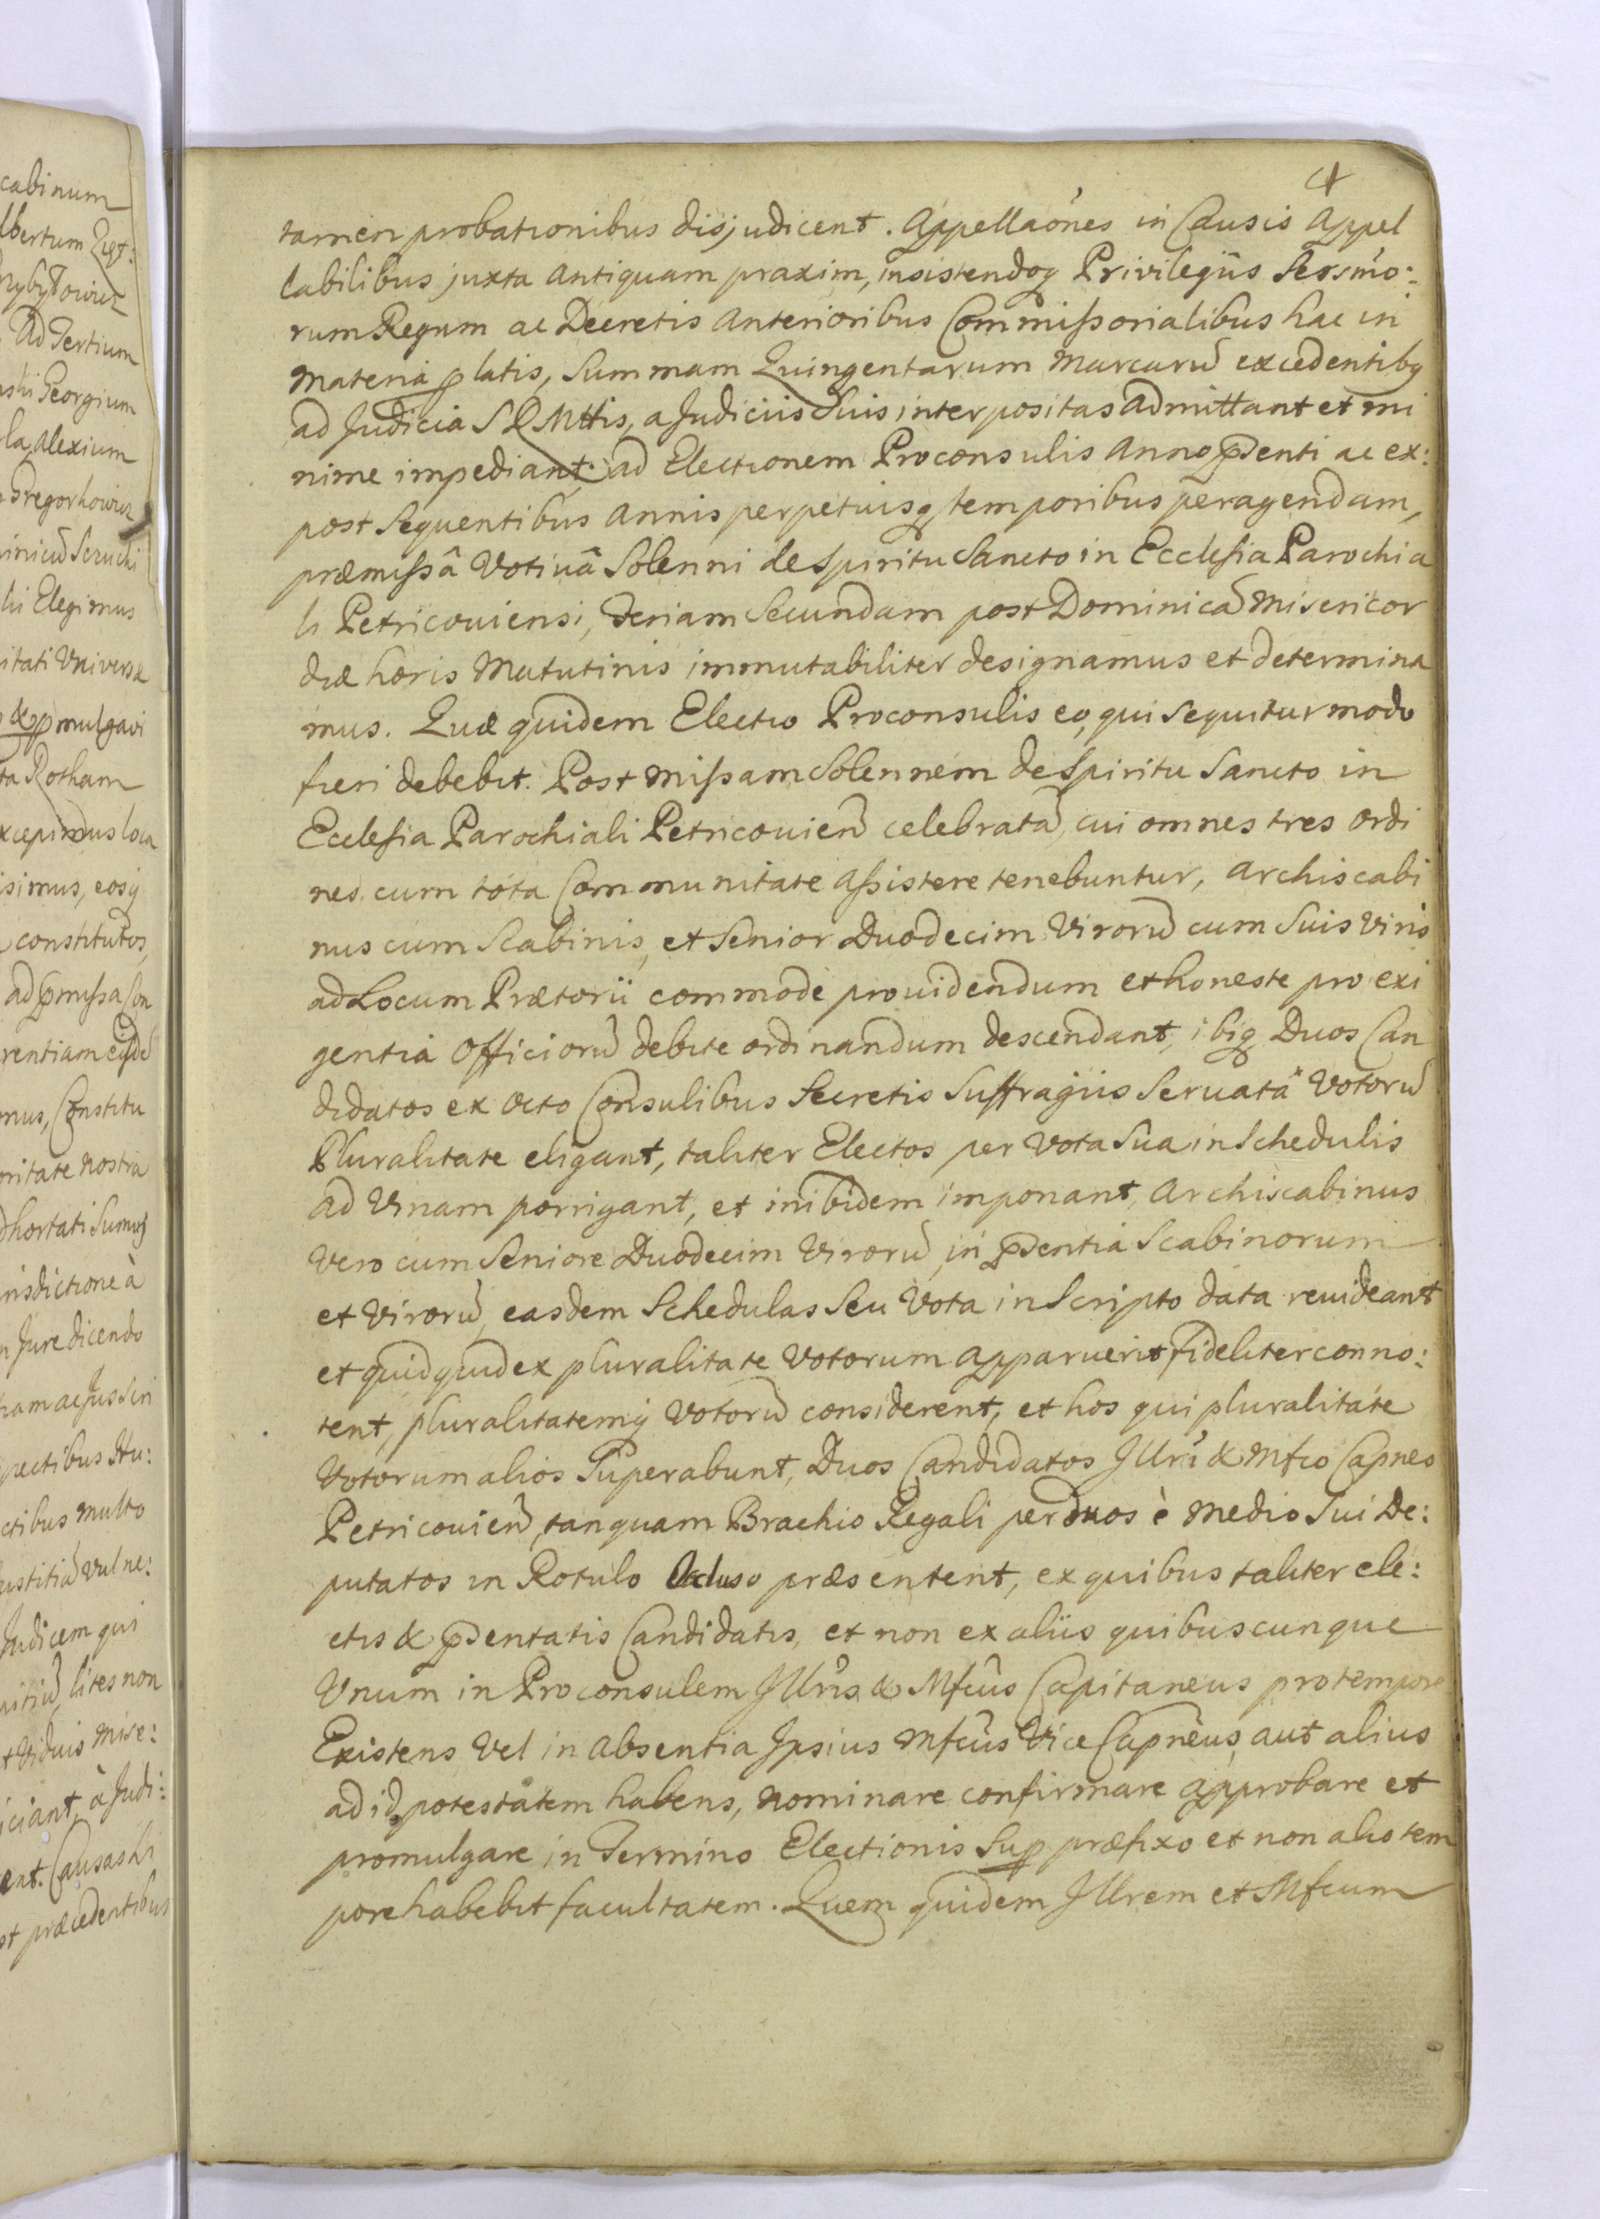 cabinum
lbertum
Ad Tertium
Georgium
la Alexium
Elegimus
itati Universæ
mulgavi
ta Rotham
simus, eosq
constitutos,
ad p̄missa Con
rentiam
mus, Constitu
oritate nostra
dhortati sumus
risdictione à
n Jure dicendo
ram ac Jus
pectibus Hu:
ctibus multo
ustitiā vulne:
Judicem qui
lites non
t Viduis Mise:
iciant, à Judi:
ent. Causas
t præcedentibus
4
tamen probationibus disjudicent. Appellaónes in Causis Appel
labilibus juxta Antiquam praxim, insistendoq Privilegiis Serssmo:
rum Regum ac Decretis anterioribus Commissorialibus hac in
Materia platis, Summam Quingentarum Marcarū excedentibq
ad Judicia S R Mttis, a Judiciis Suis interpositas admittant et mi
nime impediant. ad Electionem Proconsulis Anno p̄senti ac ex:
post Sequentibus Annis perpetuisq temporibus peragendam,
præmissâ Votivâ Solenni de Spiritu Sancto in Ecclesia Parochia
li Petricoviensi, Feriam Secundam post Dominicā Misericor
diæ horis Matutinis immutabiliter designamus et determina
mus. Quæ quidem Electio Proconsulis eo, qui sequitur modo
fieri debebit. Post Missam Solennem de Spiritu Sancto in
Ecclesia Parochiali Petricovieñ celebratā, cui omnes tres ordi
nes cum tota Communitate assistere tenebuntur, Archiscabi
nus cum Scabinis, et Senior Duodecim Virorū cum Suis Viris
ad Locum Prætorii commodè providendum et honeste pro exi
gentia Officiorū debite ordinandum descendant, ibiq Duos Can
didatos ex Octo Consulibus Secretis Suffragiis Servatâ Votorū
Pluralitate eligant, taliter Electos per Vota Sua in Schedulis
ad Vrnam porrigant, et inibidem imponant, Archiscabinus
Vero cum Seniore Duodecim Virorū, in p̄sentia Scabinorum
et Virorū, easdem Schedulas Seu Vota in Scripto data revideant
et quidquid ex pluralitate Votorum apparuerit fideliter conno:
tent, pluralitatemq Votorū considerent, et hos qui pluralitate
Votorum alios Superabunt, Duos Candidatos Jllri & Mfco Capneo
Petricovieñ, tanquam Brachio Regali per duos è medio Sui De:
putatos in Rotulo præsentent, ex quibus taliter ele:
ctis & p̄sentatis Candidatis, et non ex aliis quibuscunque
Vnum in Proconsulem Jllris & Mfcus Capitaneus pro tempore
Existens Vel in absentia Jpsius Mfcus Vice Capneus, aut alius
ad id potestatem habens, nominare confirmare approbare et
promulgare in Termino Electionis Sup præfixo et non alio tem
pore habebit facultatem. Quem quidem Jllrem et Mfcum